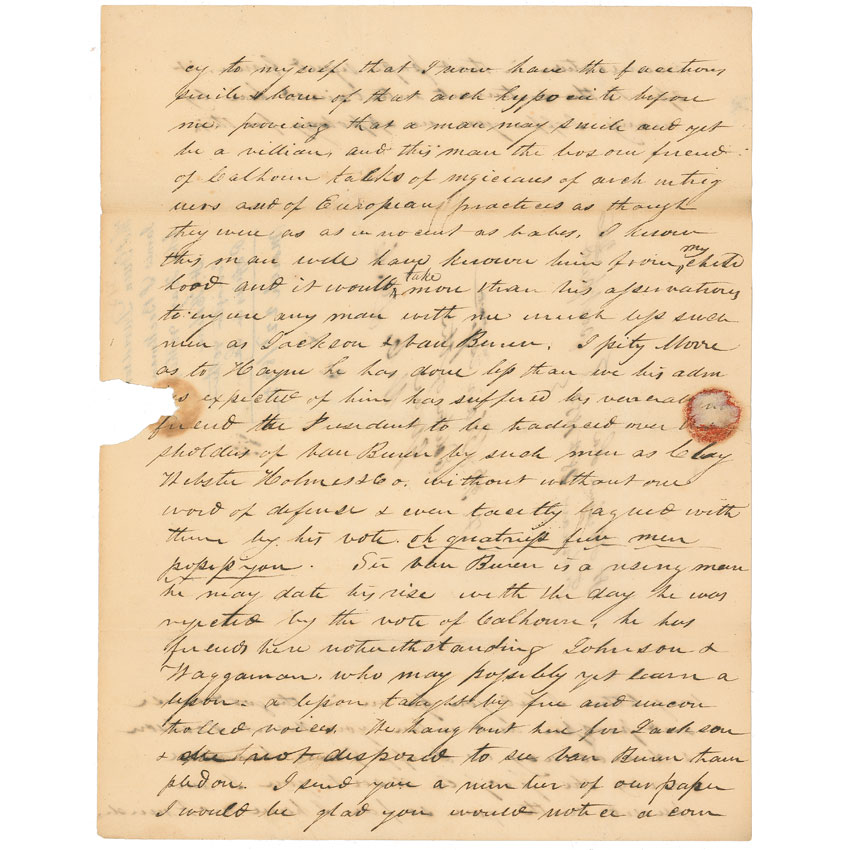 cy to myself that I now have the facetious
smile & kow of that arch hypocrite before
me, proving that a man may smile and yet
be a villian, and this man the bosom friend
of Calhoun talks of mgicians of arch intrig
uers and of European practices as though
they were as as innocent as babes, I know
this man well have known him from my child
hood and it would take more than his asservations
to injure any man with me much less such
men as Jackson & Van Buren. I pity Moore
as to Hayne he has done less than we his adm
rs expected of him has suffered his venerable
friend the President to be traduced over
sholders of Van Buren by such men as Clay
Webster Holmes & Co. without without one
word of defense & even tacitly eagued with
them by his vote. oh gratitude few men
possess you. Sir Van Buren is a rising man
he may date his rise with the day he was
rejected by the vote of Calhoun, he has
friends here notwithstanding Johnson &
Waggaman, who may possibly yet learn a
lesson. a lesson taught by free and uncon
trolled voices. We hang out here for Jackson
& not disposed to see Van Buren tram
pled on. I send you a number of our paper
I would be glad you would notice a com